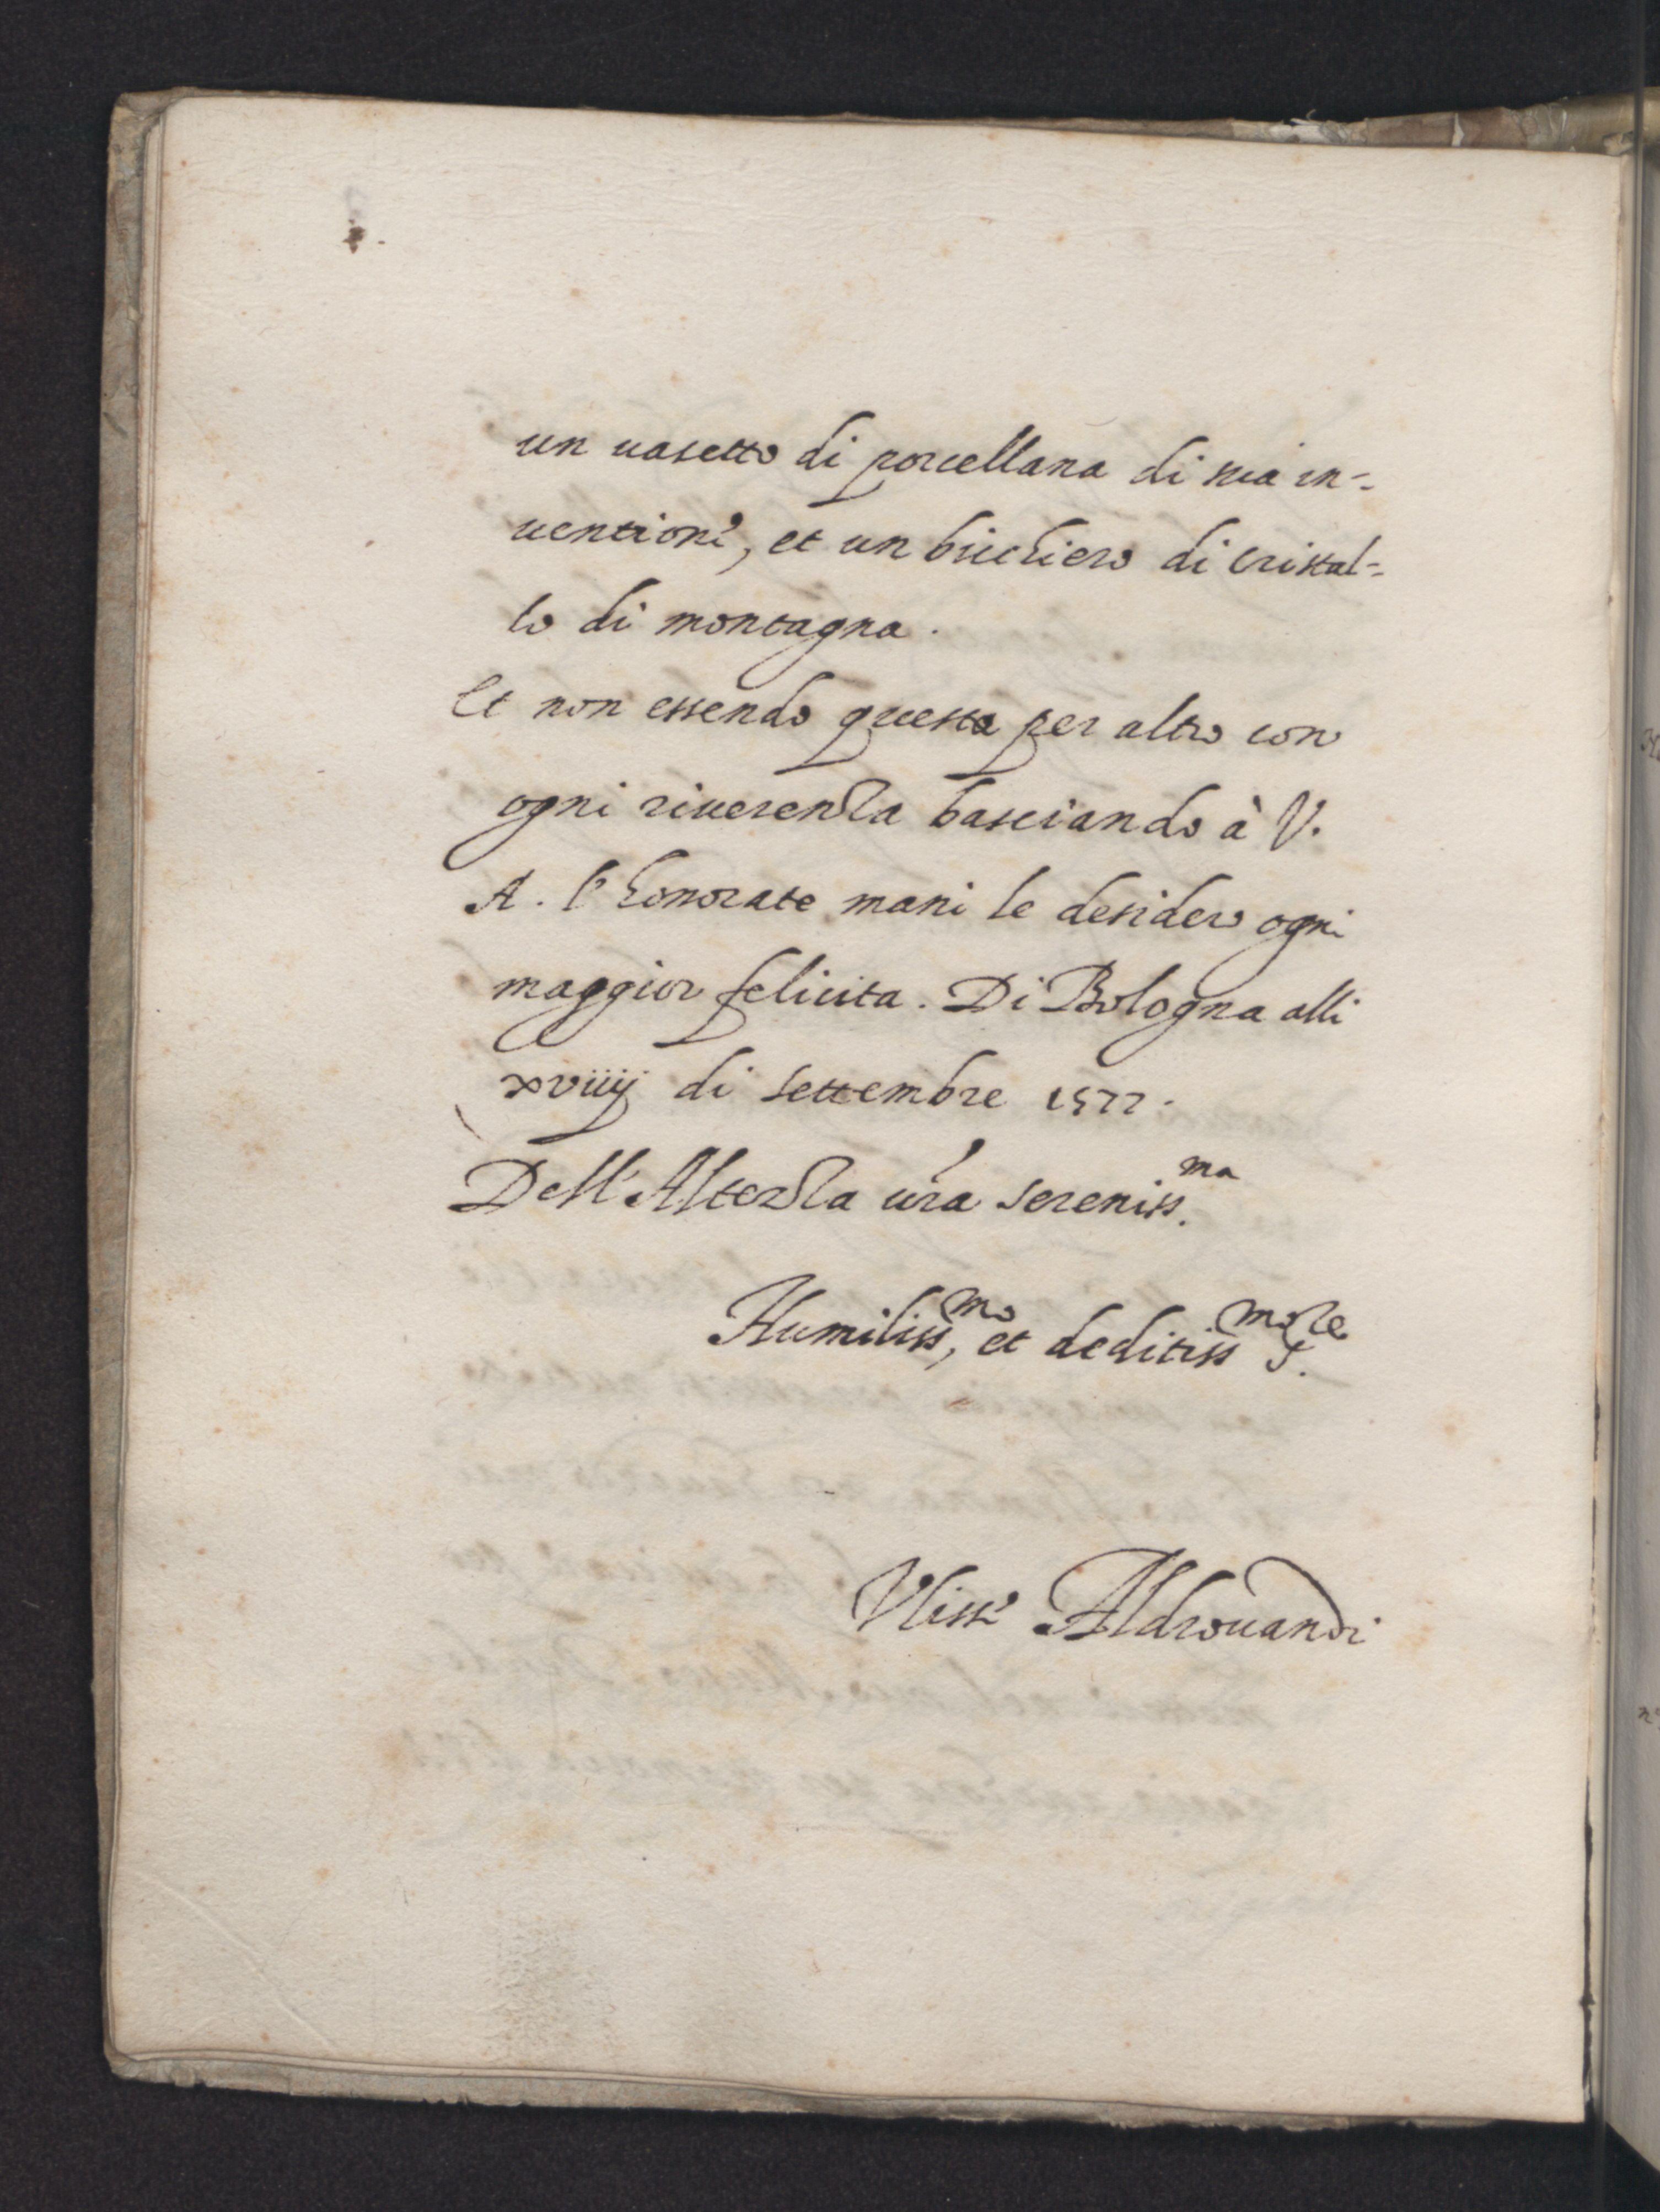 un uasetto di porcellana di sua in-
uentione, et un bicchiero di cristal-
lo di montagna.
Et non essendo questa per altro con
ogni riuerenza basciando à V.
A. l'honorate mani le desidero ogni
maggior felicita. Di Bologna alli
xviiij di settembre 1577.
Dell'Altezza ura sereniss.ma
Humiliss.mo, et deditiss.mo s.re
Vlisse Aldrouandi